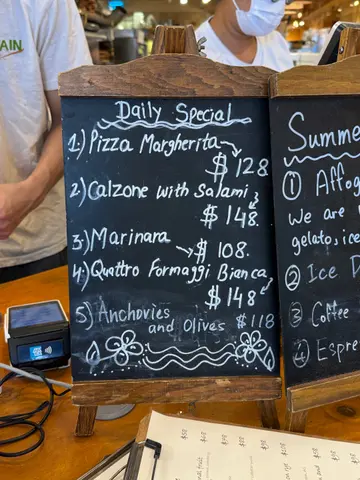 Daily Special
1.) Pizza Margherita
$ 128
2.) Calzone with Salami
$ 148.
3.) Marinara → $ 108.
4.) Quattro Formaggi Bianca
$ 148
5.) Anchovies
and Olives $118
Summe
① Affog
We are
gelato, ice
② Ice D
③ Coffee
④ Espre
AIN.